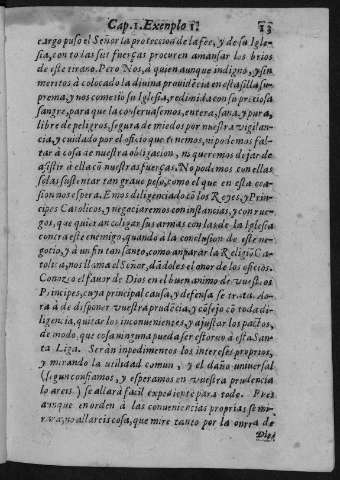 Cap. 1. Exemplo 1? 13
cargo puso el Señor la proteccion de la fee, y de su Igle-
sia, con to las sus fuerças procuren amansar los brios
de este tirano. Pero Nos, à quien aunque indigno, y sin
meritos à colocado la divina prouidẽcia en esta silla su-
prema, y nos cometiò su Iglesia, redimida con su preciosa
sangre, para que la conseruasemos, entera, sana, y pura,
libre de peligros, segura de miedos por nuestra vigilan-
cia, y cuidado por el oficio que tenemos, ni podemos fal-
tar à cosa de nuestra obligacion, ni queremos dejar de
asistir à ella cõ nuestras fuerças. No podemos con ellas
solas sustentar tan graue peso, como el que en esta oca-
sion nos espera. Emos diligenciado cõ los Reyes, y Prin-
cipes Catolicos, y negociaremos con instancias, y con rue-
gos, que quieran coligar sus armas con las de la Iglesia
contra este enemigo, quando à la conclusion de este ne-
gotio, y à un fin tan santo, como anparar la Religiõ Ca-
tolica, nos llama el Señor, dãdoles el onor de los oficios.
Conozco el fauor de Dios en el buen animo de vuestros
Principes, cuya principal causa, y defensa se trata. Ao-
ra à de disponer vuestra prudẽcia, y cõsejo cõ toda di-
ligencia, quitar los inconuenientes, y ajustar los pactos,
de modo, que cosa ninguna pueda ser estoruo à esta San-
ta Liga. Seràn inpedimentos los intereses proprios,
y mirando la utilidad comun, y el daño universal
(segun confiamos, y esperamos en vuestra prudencia
lo areis) se allarà facil expediente para todo. Pues
aunque en orden à las conueniencias proprias se mi-
rara, no allareis cosa, que mire tanto por la onrra de
Dios